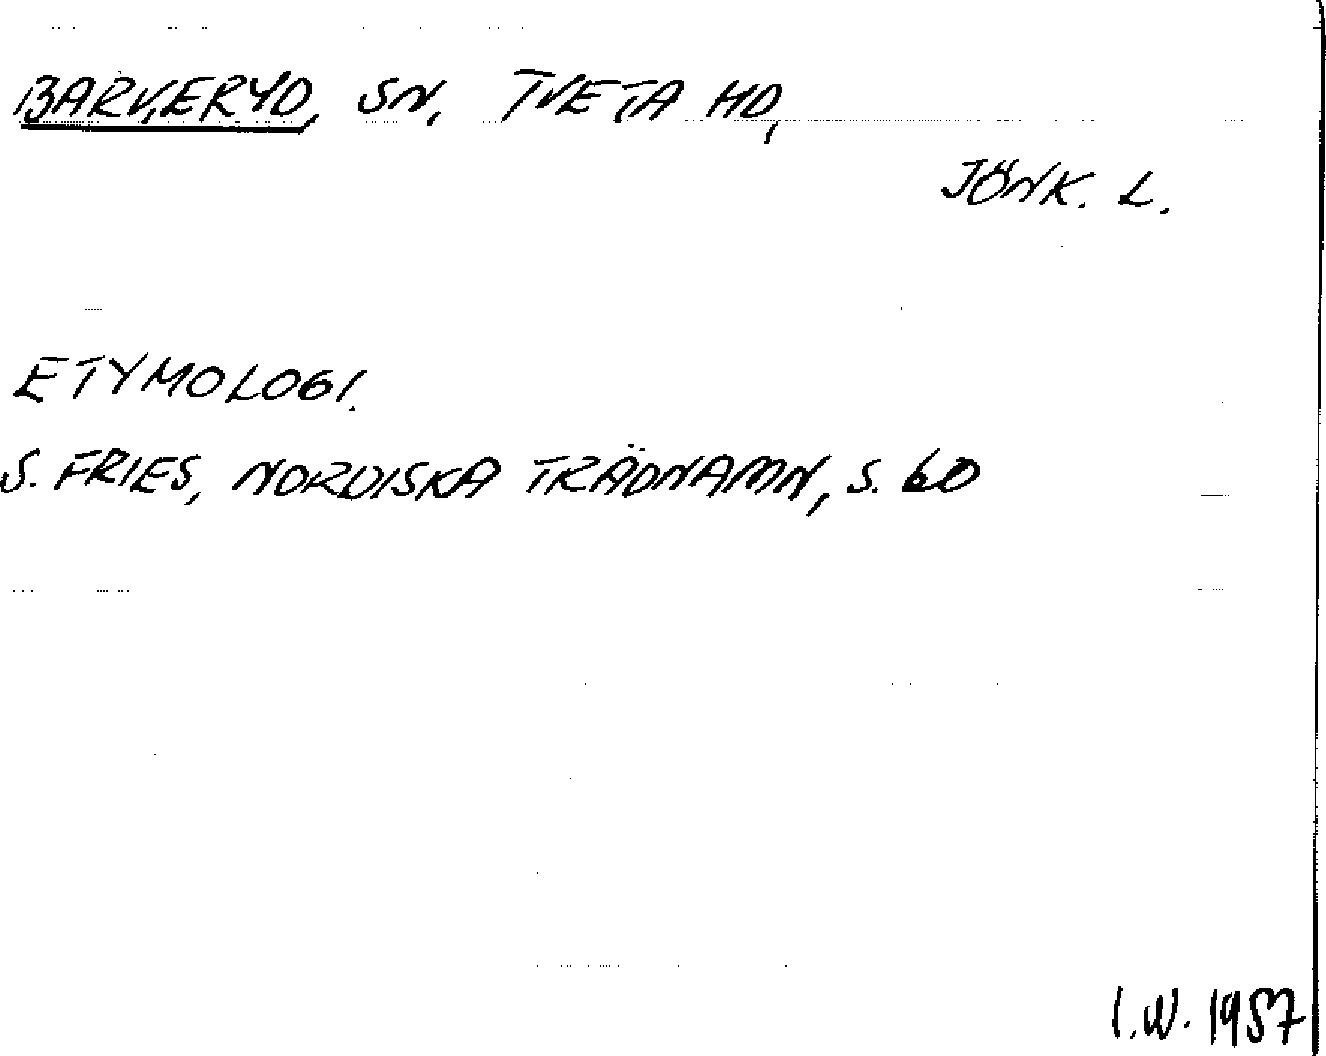 BARKERYD, SN, TVETA HD,
JÖNK. L.
ETYMOLOGI.
S. FRIES, NORDISKA TRÄDNAMN, S. 60
I.W. 1957